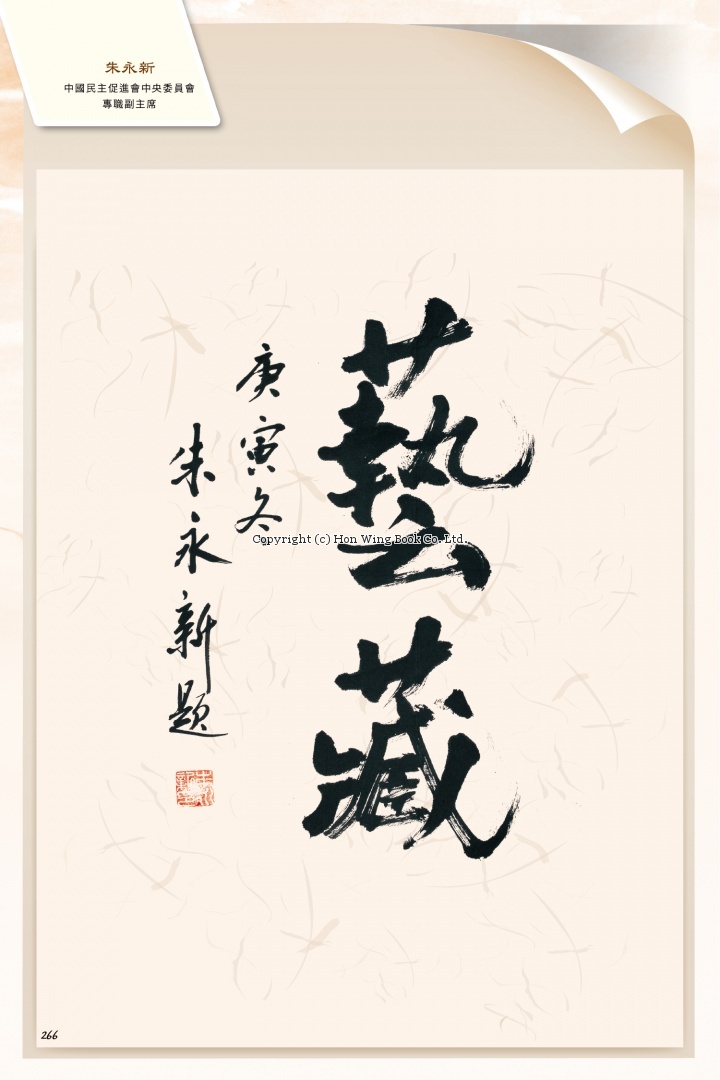 朱永新
中國民主促進會中央委員會
專職副主席
藝藏
庚寅冬
朱永新題
Copyright (c) Hon Wing Book Co. Ltd.
266